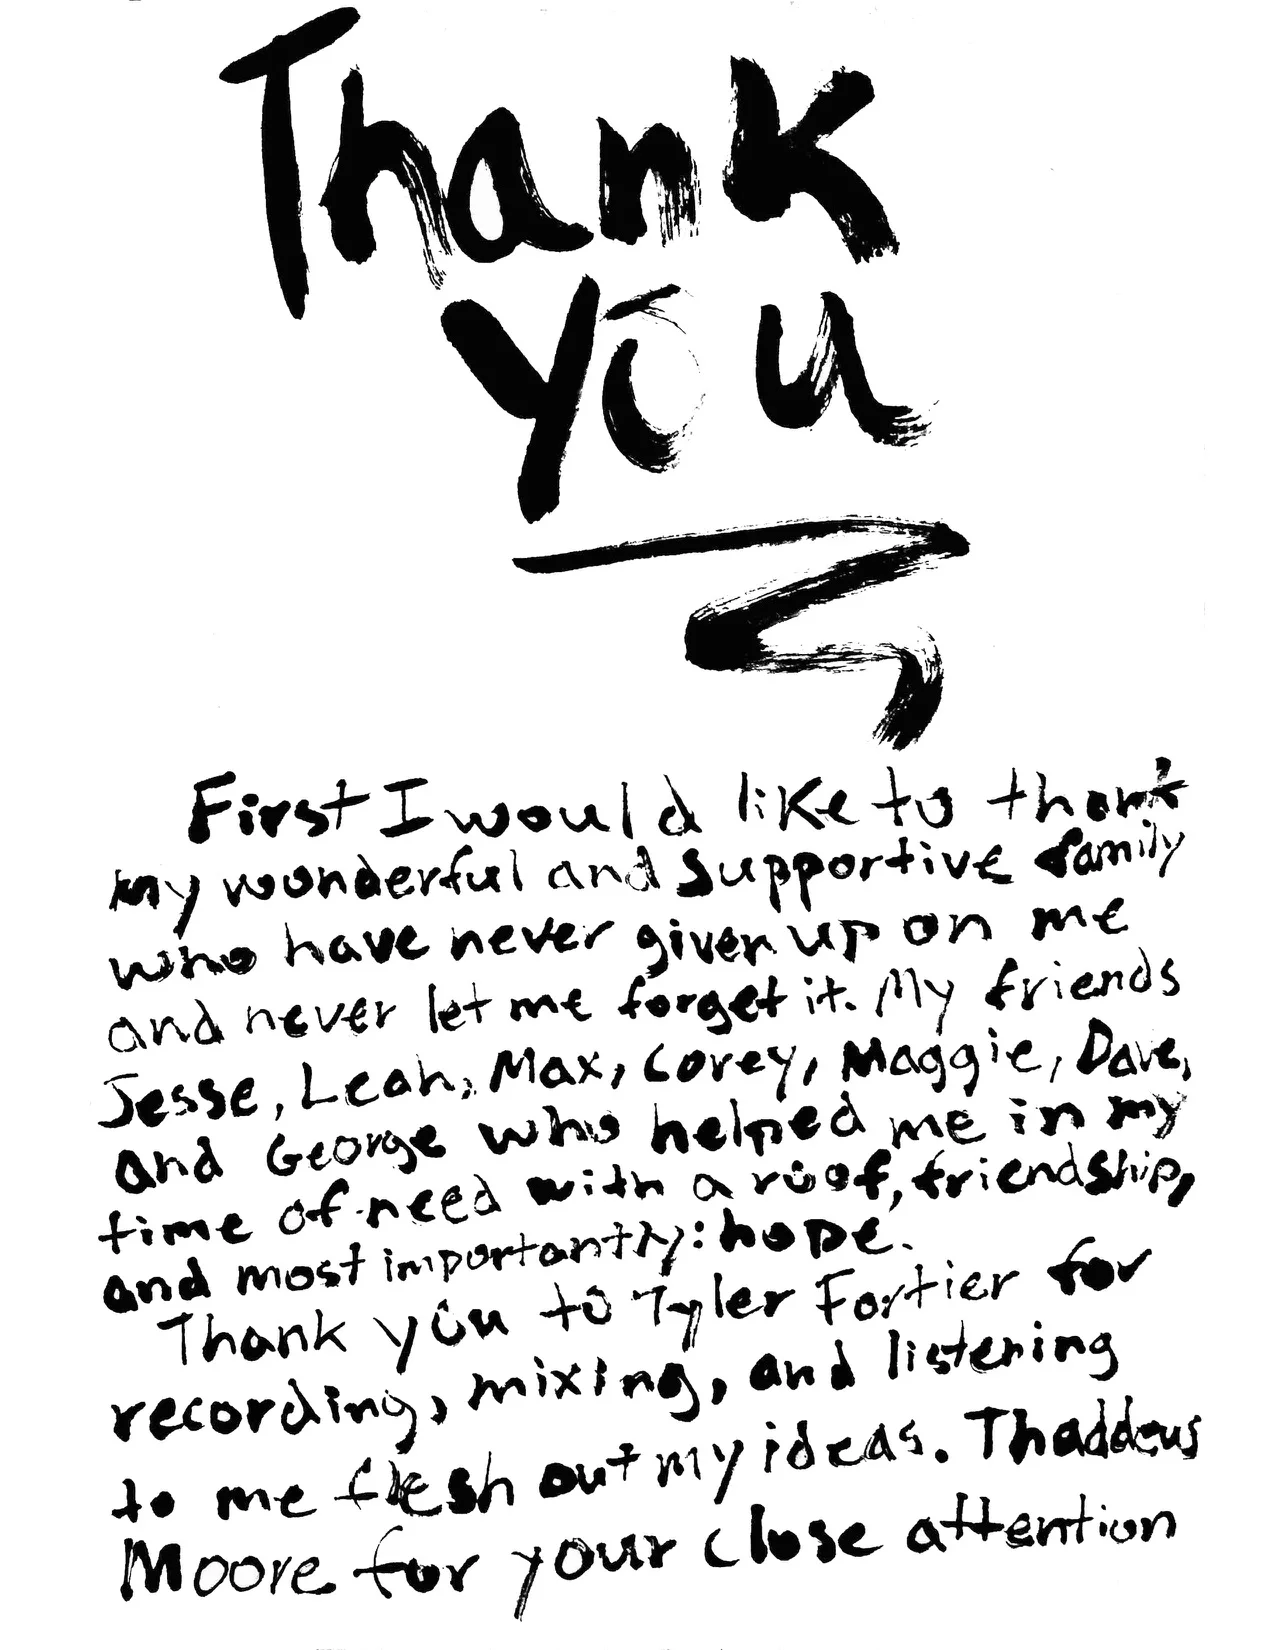 Thank
you
First I would like to thank
my wonderful and supportive family
who have never given up on me
and never let me forget it. My friends
Jesse, Leah, Max, Corey, Maggie, Dave,
and George who helped me in my
time of need with a roof, friendship,
and most importantly: hope.
Thank you to Tyler Fortier for
recording, mixing, and listening
to me flesh out my ideas. Thaddeus
Moore for your close attention